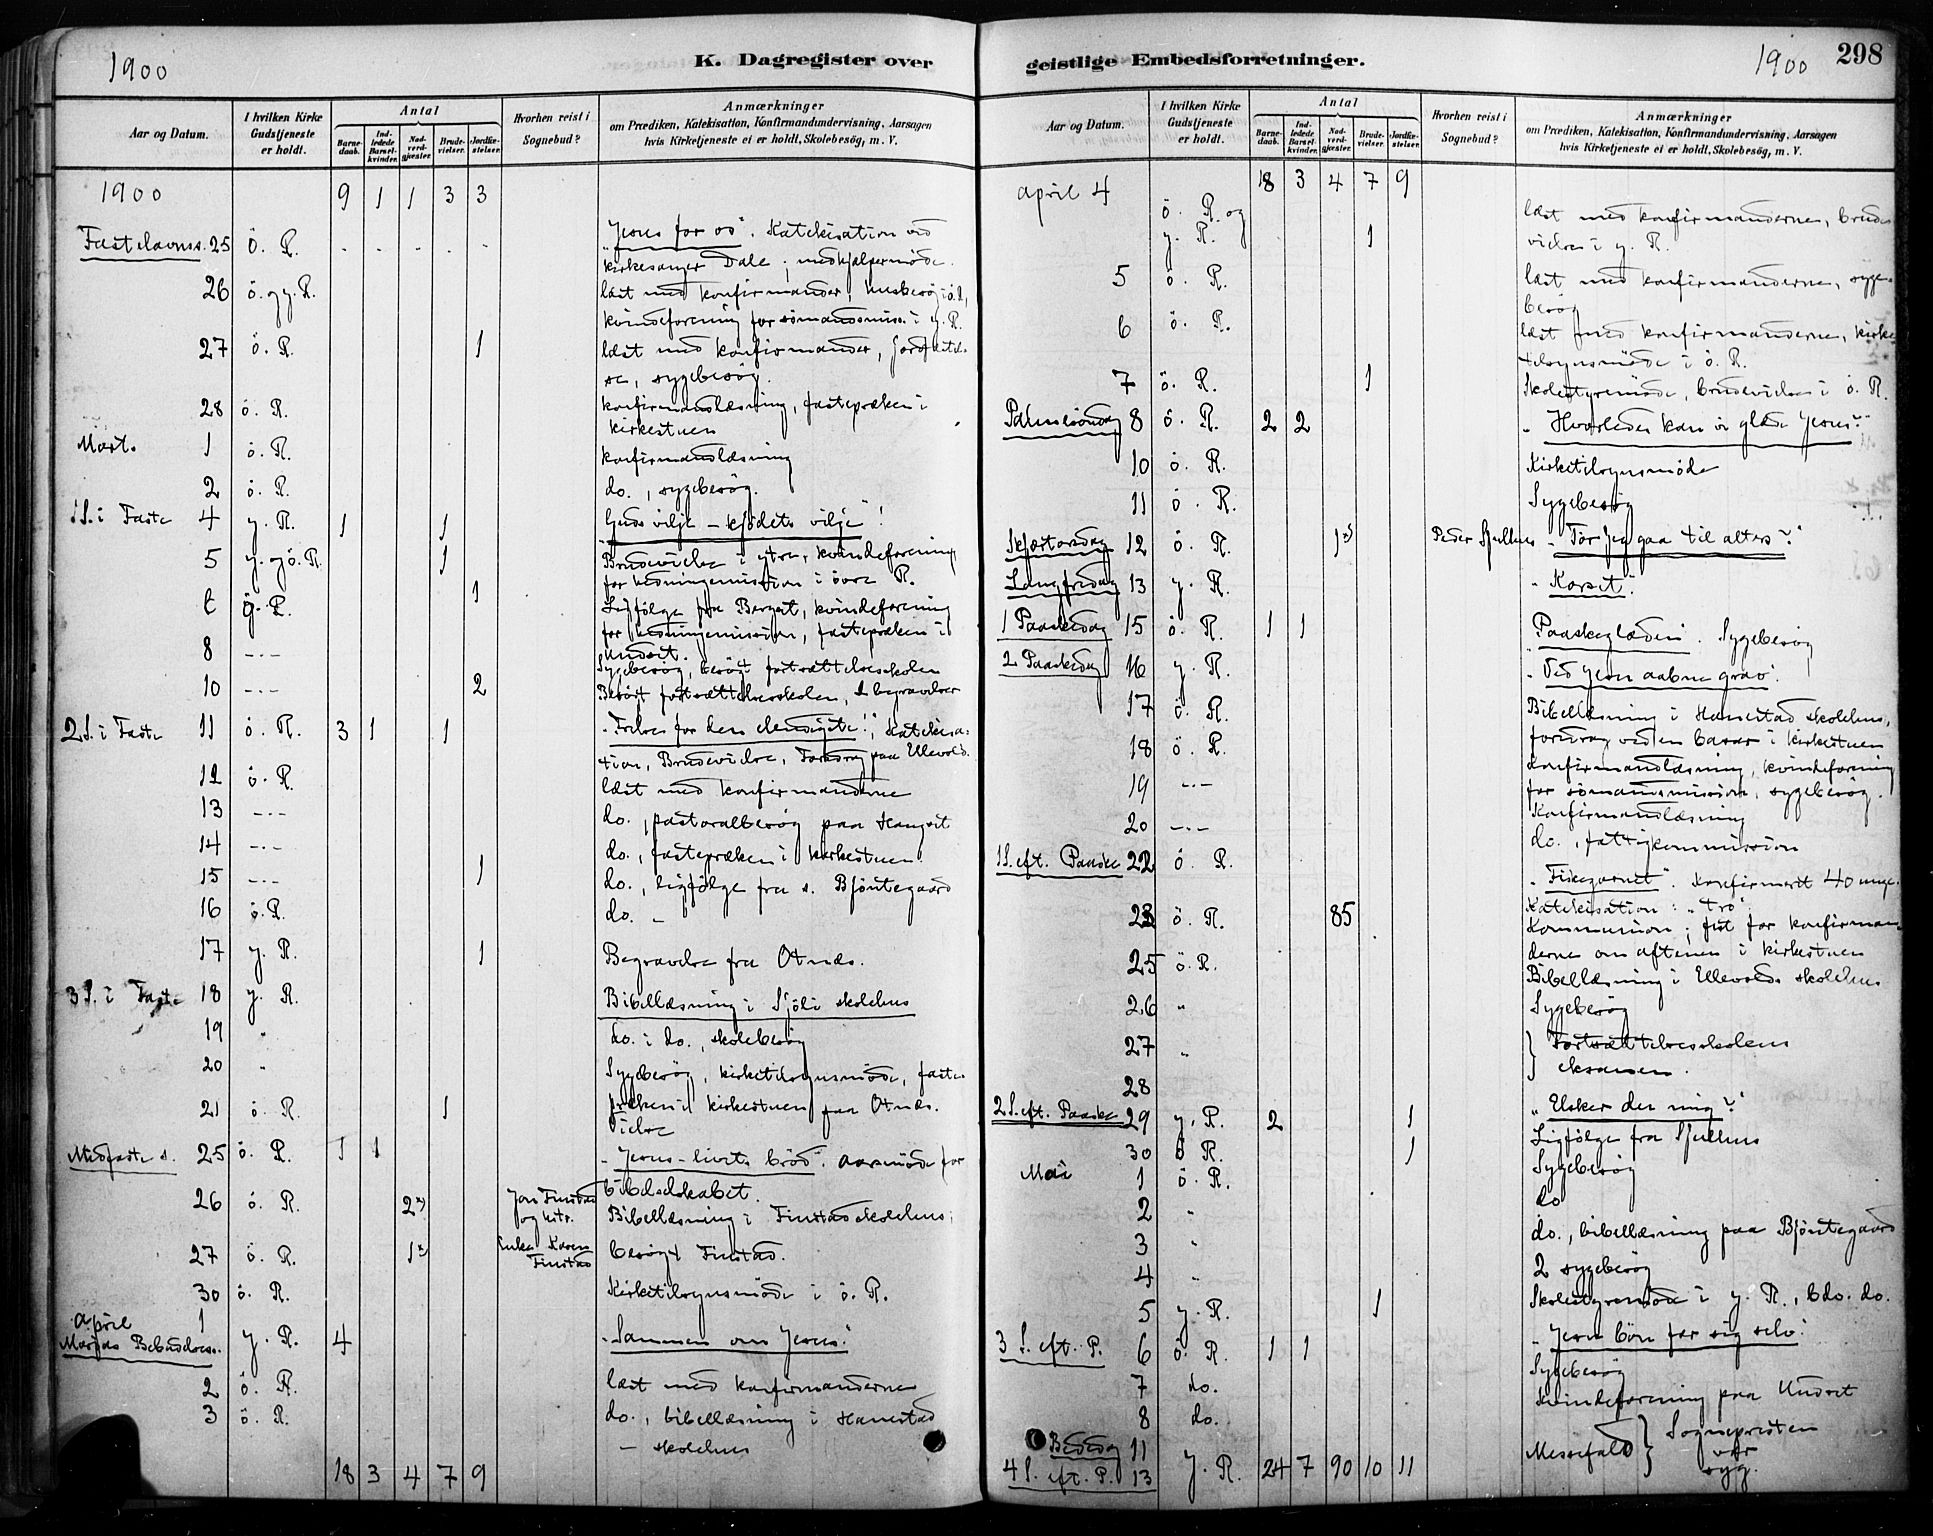 1900
K. Dagregister over
Aar og Datum.
I hvilken Kirke Gudstjeneste er holdt.
Antal
Barne-daab.
Ind-ledede Barsel-kvinder.
Nad-verd-gjæster.
Brude-vielser.
Jordfæ-stelser.
Hvorhen reist i Sognebud?
Anmærkninger
om Prædiken, Katekisation, Konfirmandundervisning, Aarsagen
hvis Kirketjeneste ei er holdt, Skolebesög, m. V.
1900 9 1 1 3 3
Fastelavnss. 25 ö. R. . . . . . "Jesus for os". Katekisation ved
kirkesanger Dale; medhjælpermöde.
26 ö. og y. R. læst med konfirmander, husbesög i ö. R,
kvindeforening for sömandsmiss. i y. R.
27 ö. R. 1 læst med konfirmander, jordfæstel-
se, sygebesög.
28 ö. R. konfirmandlæsning, fastepræken i
kirkestuen
Mart. 1 ö. R. konfirmandlæsning
2 ö. R. do., sygebesög.
1 S. i Faste 4 y. R. 1 1 "Guds vilje – kjödets vilje"!
5 y. og ö. R. 1 Brudevielse i ytre, kvindeforening
for hedningemission i övre R.
ö. R. 1 Ligfölge fra Berget, kvindeforening
for hedningemission, fastepræken i
Undset.
8 –"– Sygebesög, besögt fortsættelsesskolen
10 –"– 2 Besögt fortsættelsesskolen, 2 begravelser
2 S. i Faste 11 ö. R. 3 1 1 "Frelse for den elendigste!"; katekisa-
tion, Brudevielse, Foredrag paa Ellevold.
12 ö. R. læst med konfirmanderne
13 –"– do., pastoralbesög paa Hangset
14 –"– do., fastepræken i kirkestuen
15 –"– 1 do., ligfölge fra s. Bjöntegaard
16 ö. R. do. –
17 y. R. 1 Begravelse fra Otnes.
3 S. i Faste 18 y. R. Bibellæsning i Sjöli skolehus
19 " do. i do., skolebesög
20 " Sygebesög, kirketilsynsmöde, faste-
21 ö. R. 1 præken i kirkestuen paa Otnes.
Vielse
Midfaste s. 25 ö. R. 1 1 "Jesus – livets bröd". Aarsmöde for
bibelselskabet.
26 ö. R. 2 Jon Finstad og hstr. Bibellæsning i Finstad skolehus;
27 ö. R. 1 Enke Karen Finstad besögt Finstad.
30 ö. R. Kirketilsynsmöde i ö. R.
April 1
Marias Bebudelsess. y. R. 4 "Sammen om Jesus!"
2 ö. R. læst med konfirmanderne
3 ö. R. do., bibellæsning i Hanestad
– skolehus
18 3 4 7 9
geistlige Embedsforretninger.
1900 298
Aar og Datum.
I hvilken Kirke Gudstjeneste er holdt.
Antal
Barne-daab.
Ind-ledede Barsel-kvinder.
Nad-verd-gjæster.
Brude-vielser.
Jordfæ-stelser.
Hvorhen reist i Sognebud?
Anmærkninger
om Prædiken, Katekisation, Konfirmandundervisning, Aarsagen
hvis Kirketjeneste ei er holdt, Skolebesög, m. V.
18 3 4 7 9
April 4 ö. R. og læst med konfirmanderne, brude-
y. R. 1 vielse i y. R.
5 ö. R. læst med konfirmanderne, syge-
besög
6 ö. R. læst med konfirmanderne, kirke-
tilsynsmöde i ö. R.
7 ö. R. 1 Skolestyremöde, brudevielse i ö. R.
Palmesöndag 8 ö. R. 2 2 "Hvorledes kan vi glæde Jesus?"
10 ö. R. Kirketilsynsmöde
11 ö. R. Sygebesög
Skjærtorsdag 12 ö. R. 1 Peder Sjullhus "Tör jeg gaa til alters?"
Langfredag 13 y. R. "Korset".
1 Paaskedag 15 ö. R. 1 1 "Paaskeglæden". Sygebesög
2 Paaskedag 16 y. R. "Ved Jesu aabne grav".
17 ö. R. Bibellæsning i Hanestad skolehus,
foredrag ved en basar i kirkestuen
18 ö. R. Konfirmandlæsning, kvindeforening
19 –"– for sömandsmission, sygebesög.
Konfirmandlæsning
20 –"– do., fattigkommission
1 S. eft. Paaske 22 ö. R. "Fiskegarnet". Konfirmert 40 unge.
Katekisation: "tro"
23 ö. R. 85 Kommunion; fest for konfirman-
derne om aftenen i kirkestuen
25 ö. R. Bibellæsning i Ellevolds skolehus
26 " Sygebesög
27 " Fortsættelsesskolens
28 eksamen.
2 S. eft. Paaske 29 y. R. 2 1 "Elsker du mig?"
30 ö R. 1 Ligfölge fra Sjullhus
Mai 1 ö. R. Sygebesög
2 " do
3 " do., bibellæsning paa Bjöntegaard
4 " 2 sygebesög
5 y. R. 1 Skolestyremöde i y. R., do. do.
3 S. eft. P. 6 ö. R. 1 1 "Jesu bön for sig selv".
7 do. Sygebesög
8 do. Kvindeforening paa Undset
Bededag 11 Messefald } Sognepresten
4 S. eft. P. 13 y. R. 24 7 90 10 11 var
syg.